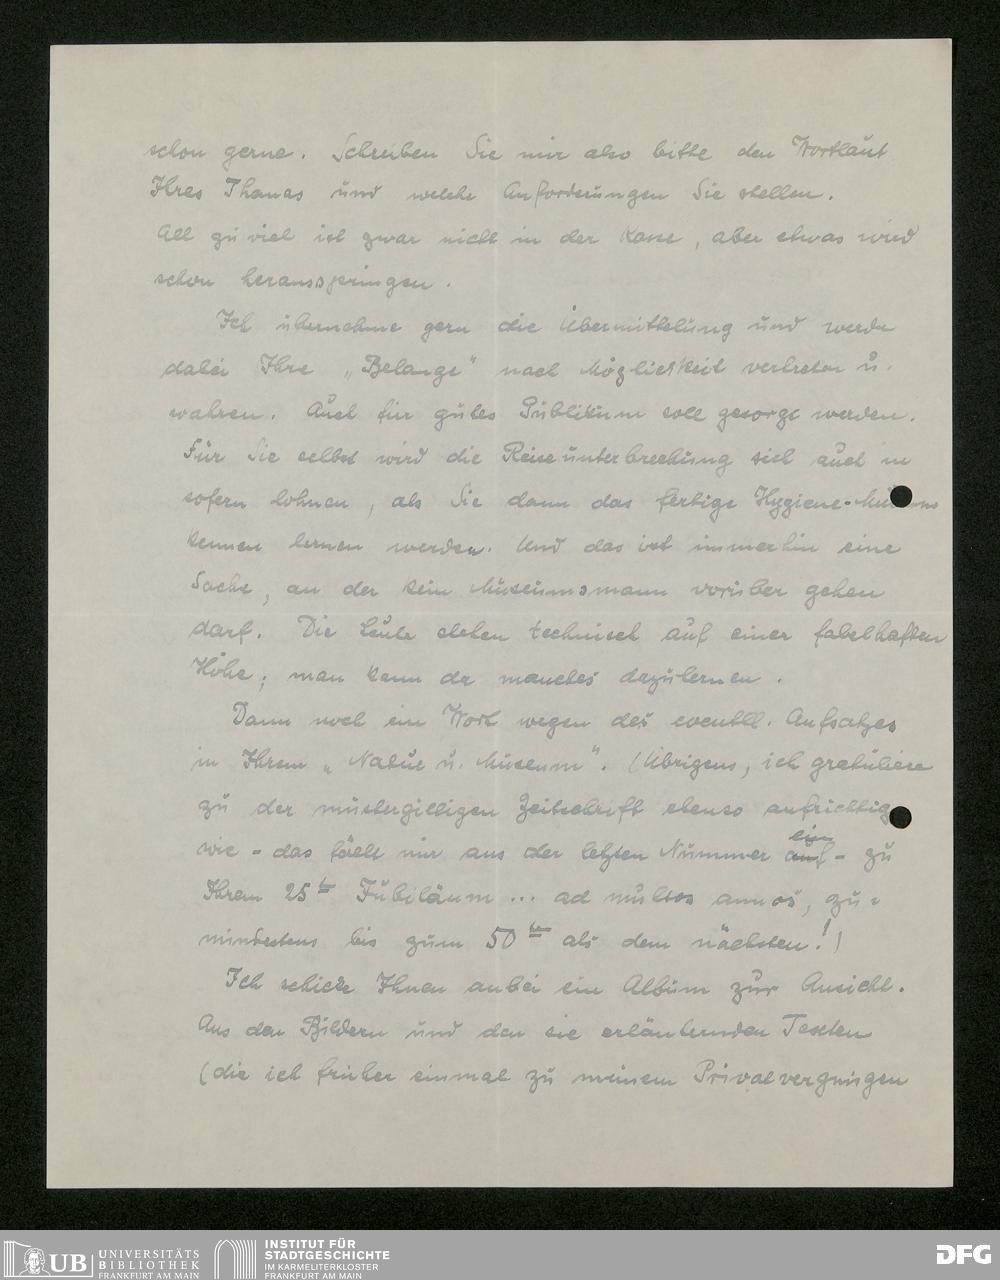 schon gerne. Schreiben Sie mir also bitte den Wortlaut
Ihres Themas und welche Anforderungen Sie stellen.
All zu viel ist zwar nicht in der Kasse, aber etwas wird
schon herausspringen.
Ich übernehme gern die Übermittelung und werde
dabei Ihre „Belange" nach Möglichkeit vertreten u.
wahren. Auch für gutes Publikum soll gesorgt werden.
Für Sie selbst wird die Reiseunterbrechung sich auch in
sofern lohnen, als Sie dann das fertige Hygiene-
kennen lernen werden. Und das ist immerhin eine
Sache, an der kein Museumsmann vorüber gehen
darf. Die Leute stehen technisch auf einer fabelhaften
Höhe; man kann da manches dazulernen.
Dann noch ein Wort wegen des eventll. Aufsatzes
in Ihrem „Natur u. Museum". (Übrigens, ich gratuliere
zu der mustergiltigen Zeitschrift ebenso aufrichtig
wie - das fällt mir aus der letzten Nummer ein - zu
Ihrem 25ten Jubiläum ... ad multos annos, zu=
mindestens bis zum 50ten als dem nächsten!)
Ich schicke Ihnen anbei ein Album zur Ansicht.
Aus den Bildern und den sie erläuternden Texten
(die ich früher einmal zu meinem Privatvergnügen
UB UNIVERSITÄTS
BIBLIOTHEK
FRANKFURT AM MAIN
INSTITUT FÜR
STADTGESCHICHTE
IM KARMELITERKLOSTER
FRANKFURT AM MAIN
DFG